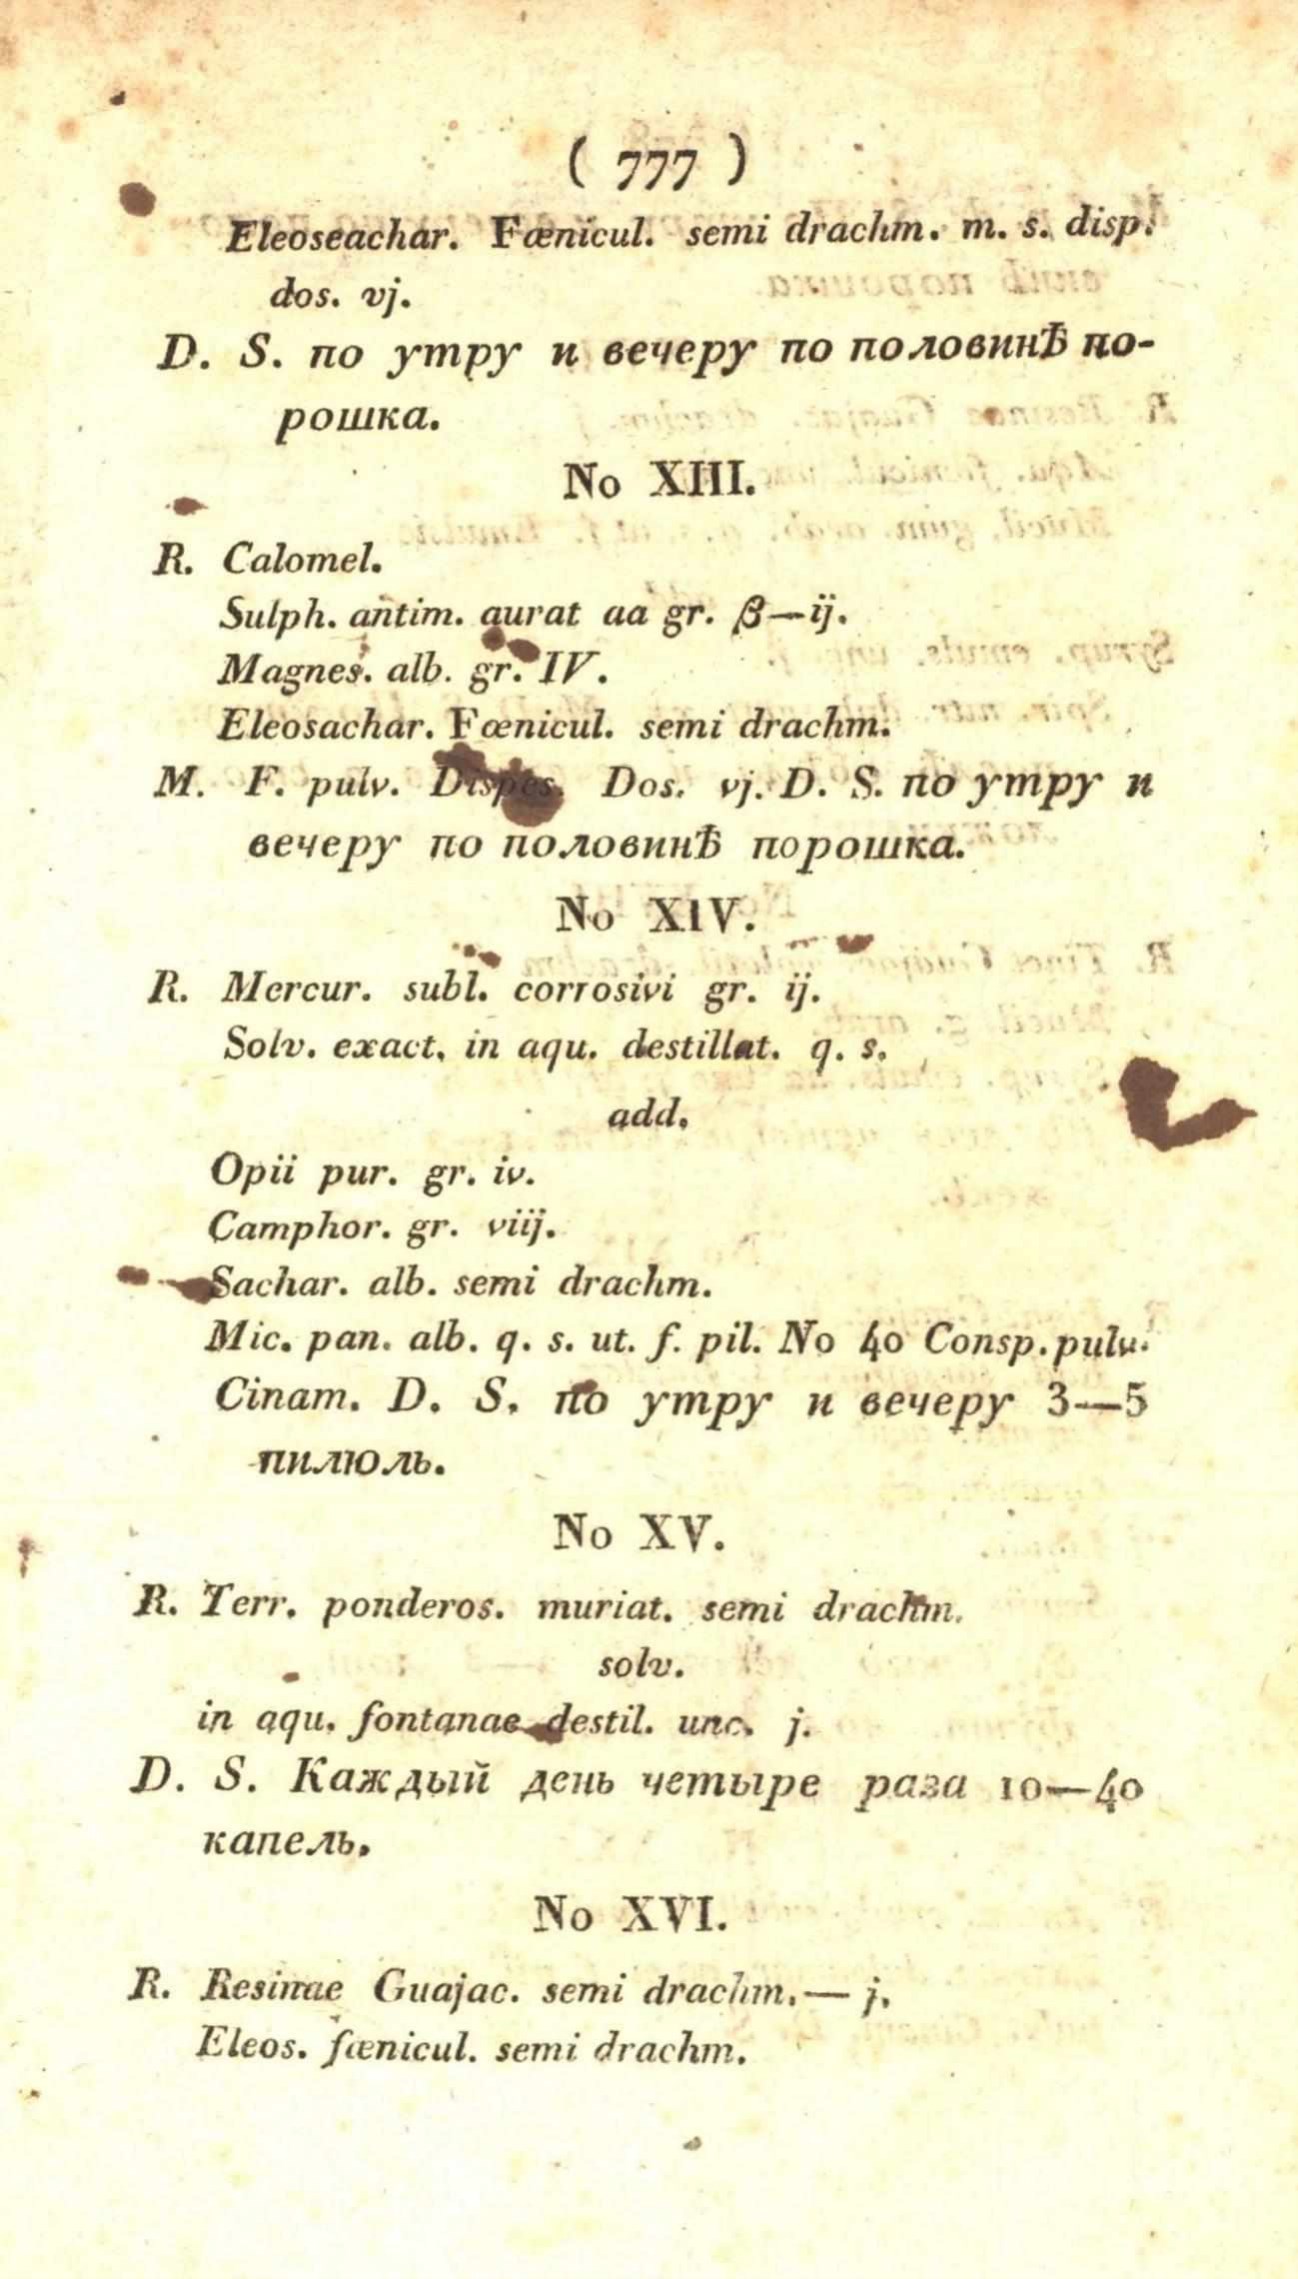 ( 777 )
Eleoseachar. Fœnicul. semi drachm. m. s. disp.
dos. vj.
D. S. по утру и вечеру по половинѣ по-
рошка.
No XIII.
R. Calomel.
Sulph. antim. aurat aa gr. β—ij.
Magnes. alb. gr. IV.
Eleosachar. Fœnicul. semi drachm.
M. F. pulv. Dispes. Dos. vj. D. S. по утру и
вечеру по половинѣ порошка.
No XIV.
R. Mercur. subl. corrosivi gr. ij.
Solv. exact. in aqu. destillat. q. s.
add.
Opii pur. gr. iv.
Camphor. gr. viij.
Sachar. alb. semi drachm.
Mic. pan. alb. q. s. ut. f. pil. No 40 Consp. pulv.
Cinam. D. S. по утру и вечеру 3—5
пилюль.
No XV.
R. Terr. ponderos. muriat. semi drachm.
solv.
in aqu. fontanae destil. unc. j.
D. S. Каждый день четыре раза 10—40
капель.
No XVI.
R. Resinae Guajac. semi drachm.— j.
Eleos. fœnicul. semi drachm.